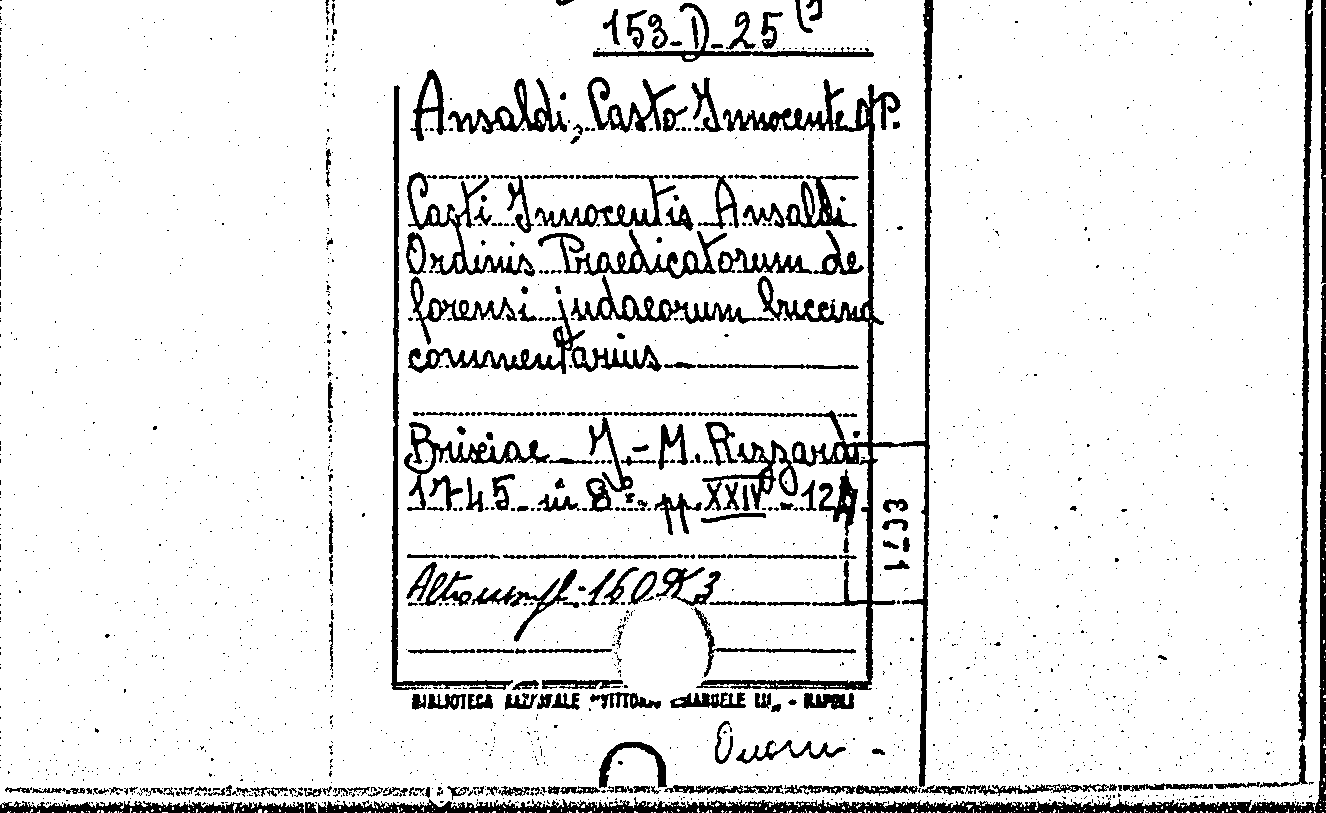 153-D-25 (1
Ansaldi, Casto Innocente O.P.
Casti Innocentis Ansaldi
Ordinis Praedicatorum de
forensi judaeorum buccina
commentarius
Brixiae - J.-M. Rizzardi
1745 - in 8° - pp. XXIV - 124
Altro esempl.- 160 K 3
1733
BIBLIOTECA NAZIONALE "VITTORIO EMANUELE III" - NAPOLI